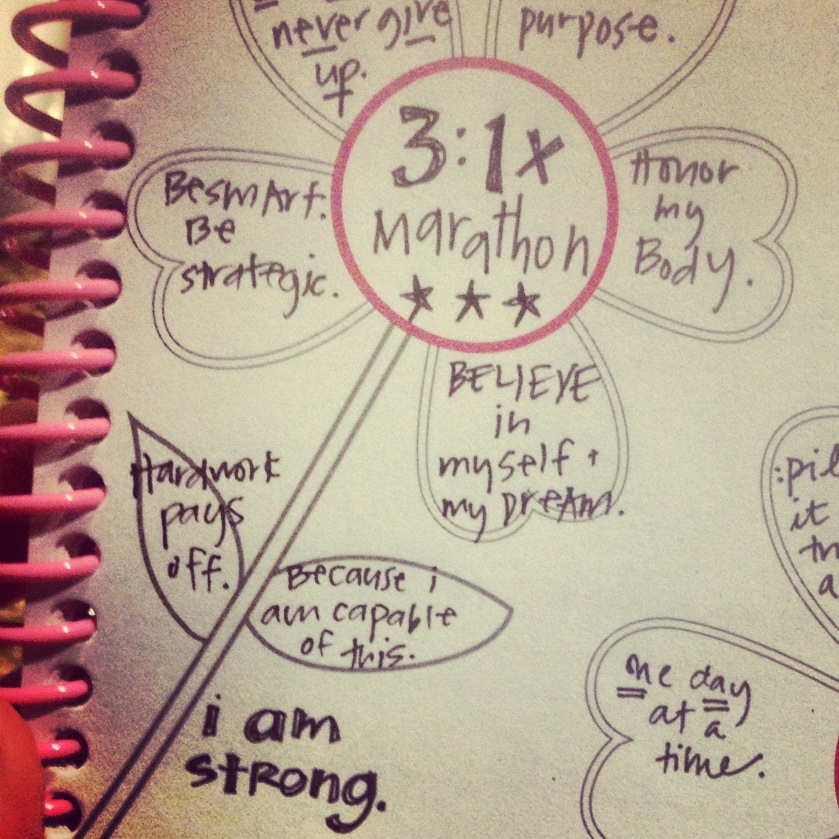 never give
up.
purpose.
3:1x
Marathon
Be smart.
Be
strategic.
Honor
my
Body.
BELIEVE
in
myself +
my DREAM.
Hardwork
pays
off.
Because i
am capable
of this.
i am
strong.
one day
at a
time.
it